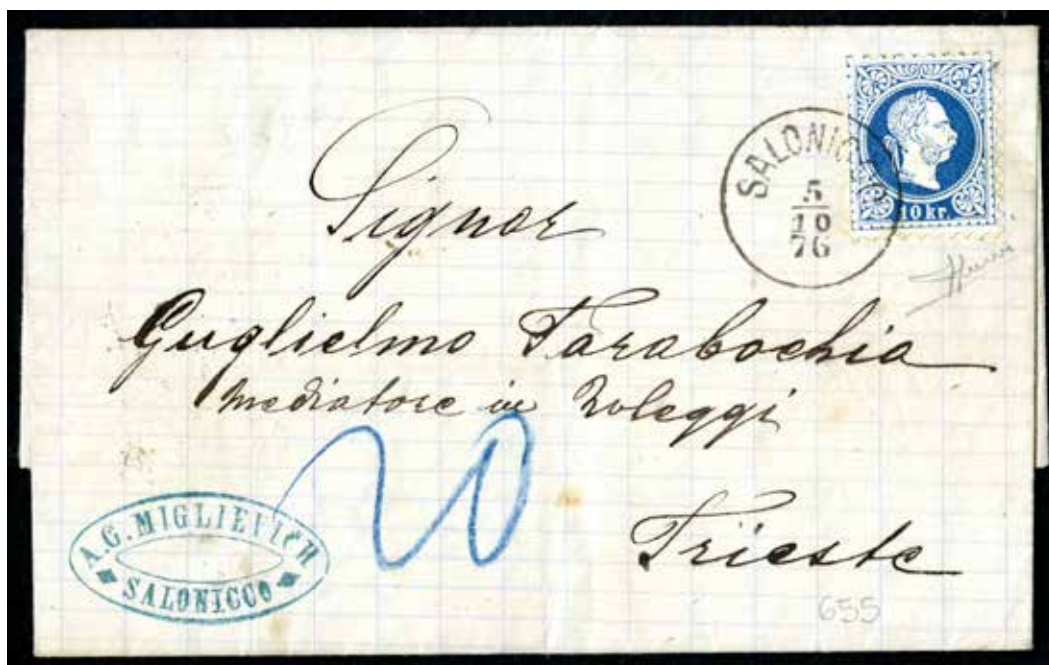 SALONICCO
5
10
76
10 kr.
Signor
Guglielmo Tarabochia
mediatore in Noleggi
Trieste
20
A. G. MIGLIEVICH
SALONICCO
655